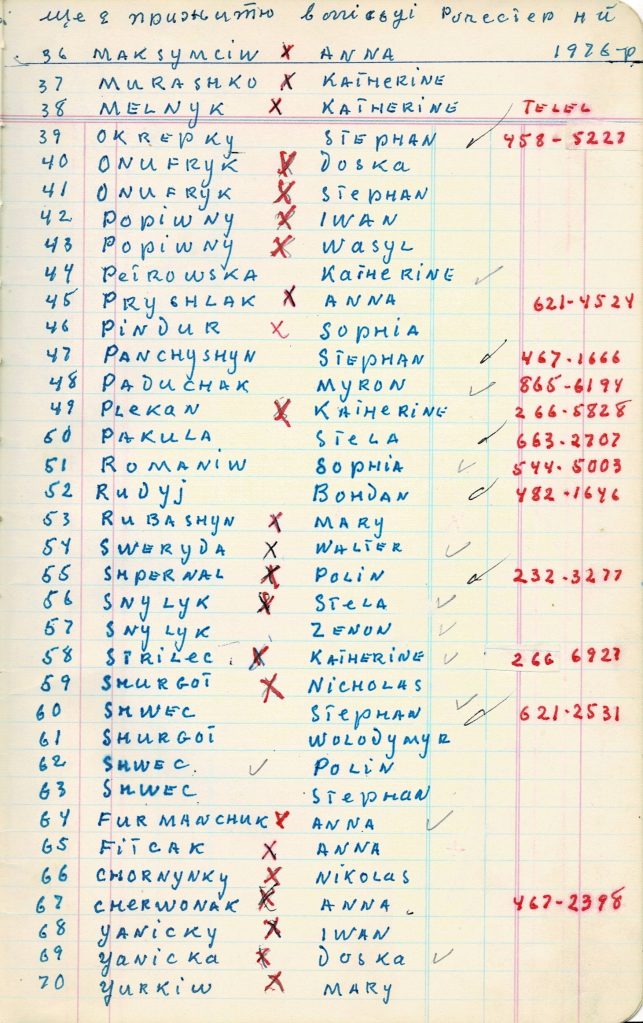 ще є
36 MAKSYMCIW X ANNA 1976-р
37 MURASHKO X KATHERINE
38 MELNYK X KATHERINE TELEL
39 OKREPKY STEPHAN ✓ 458-5227
40 ONUFRYK X DOSKA
41 ONUFRYK X STEPHAN
42 POPIWNY X IWAN
43 POPIWNY X WASYL
44 PETROWSKA KATHERINE ✓
45 PRYSHLAK X ANNA 621-4524
46 PINDUR X SOPHIA
47 PANCHYSHYN STEPHAN ✓ 467-1666
48 PADUCHAK MYRON ✓ 865-6194
49 PLEKAN X KATHERINE 266-5828
50 PAKULA STELA ✓ 663-2707
51 ROMANIW SOPHIA ✓ 544-5003
52 RUDYJ BOHDAN ✓ 482-1646
53 RUBASHYN X MARY
54 SWERYDA X WALTER ✓
55 SHPERNAL X POLIN ✓ 232-3277
56 SNYLYK X STELA ✓
57 SNYLYK ZENON ✓
58 STRILEC X KATHERINE ✓ 266 6927
59 SHURGOT X NICHOLAS
60 SHWEC STEPHAN ✓ 621-2531
61 SHURGOT WOLODYMYR
62 SHWEC ✓ POLIN
63 SHWEC STEPHAN
64 FURMANCHUK X ANNA ✓
65 FITCAK X ANNA
66 CHORNYNKY X NIKOLAS
67 CHERWONAK X ANNA 467-2398
68 YANICKY X IWAN
69 YANICKA X DOSKA ✓
70 YURKIW X MARY